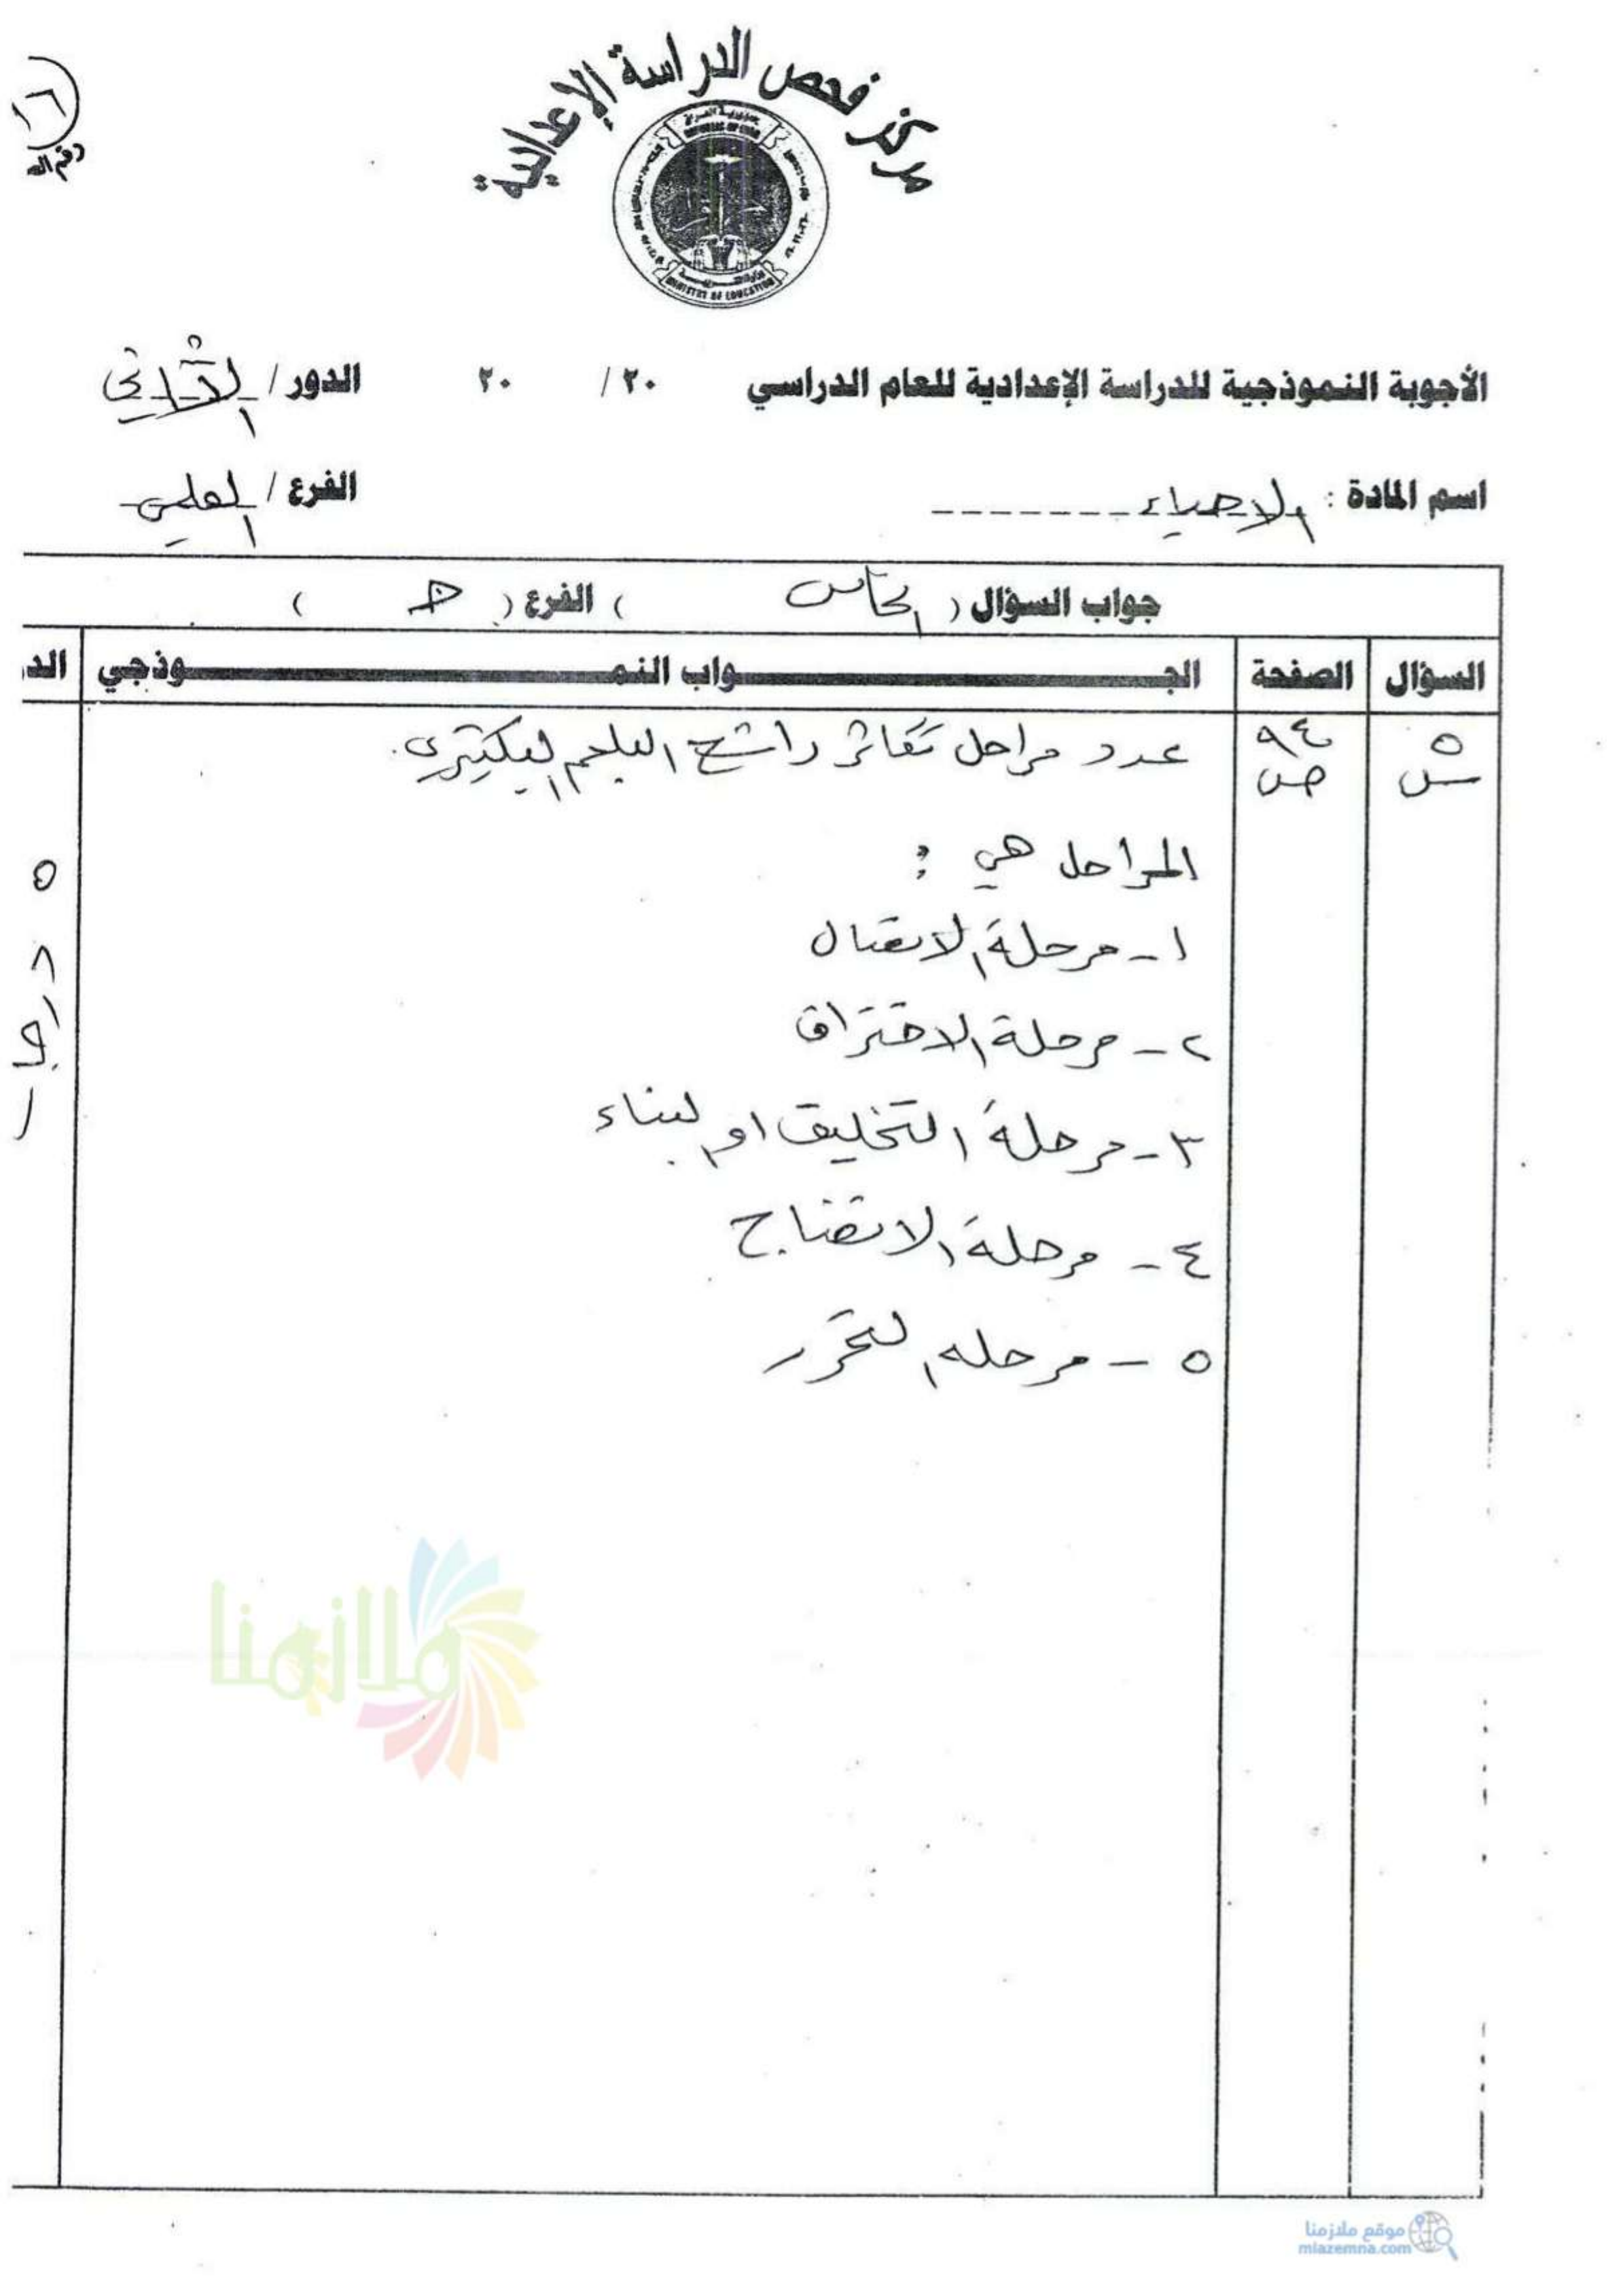 ١٦
رقم الص
مركز فحص الدراسة الإعدادية
REPUBLIC OF IRAQ
MINISTRY OF EDUCATION
الأجوبة النموذجية للدراسة الإعدادية للعام الدراسي ٢٠ / ٢٠ الدور / الثاني
اسم المادة : الاحياء الفرع / العلمي
جواب السؤال ( الخامس ) الفرع ( جـ )
السؤال الصفحة الجـــواب النمـــوذجي الد
س ٥ ص ٩٤ عدد مراحل تكاثر راشح البلعم البكتيري.
المراحل هي :
١ - مرحلة الاتصال
٢ - مرحلة الاختراق
٣ - مرحلة التخليق او البناء
٤ - مرحلة الانضاج
٥ - مرحله التحرر
٥ درجات
ملازمنا
موقع ملازمنا
mlazemna.com